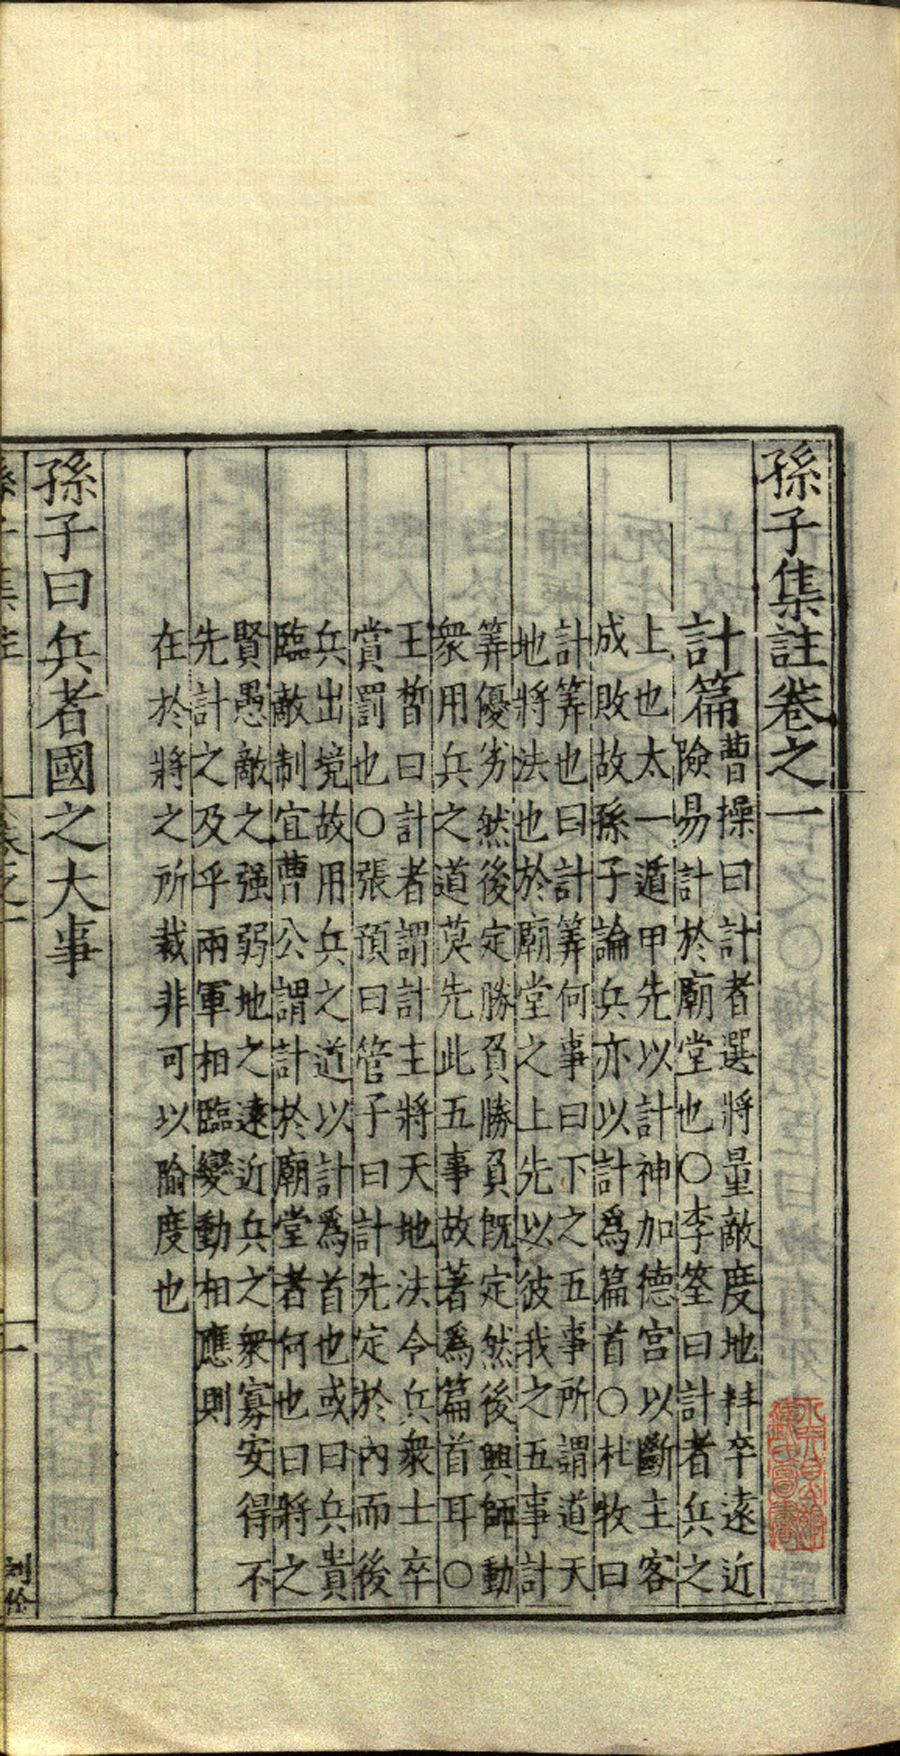 孫子集註卷之一
計篇
曹操曰計者選將量敵度地料卒遠近
險易計於廟堂也○李筌曰計者兵之
上也太一遁甲先以計神加德宮以斷主客
成敗故孫子論兵亦以計爲篇首○杜牧曰
計筭也曰計筭何事曰下之五事所謂道天
地將法也於廟堂之上先以彼我之五事計
筭優劣然後定勝負勝負既定然後興師動
衆用兵之道莫先此五事故著爲篇首耳○
王晳曰計者謂計主將天地法令兵衆士卒
賞罰也○張預曰管子曰計先定於內而後
兵出境故用兵之道以計爲首也或曰兵貴
臨敵制宜曹公謂計於廟堂者何也曰將之
賢愚敵之强弱地之遠近兵之衆寡安得不
先計之及乎兩軍相臨變動相應則
在於將之所裁非可以隃度也
孫子曰兵者國之大事
孫子集註 卷之一 一